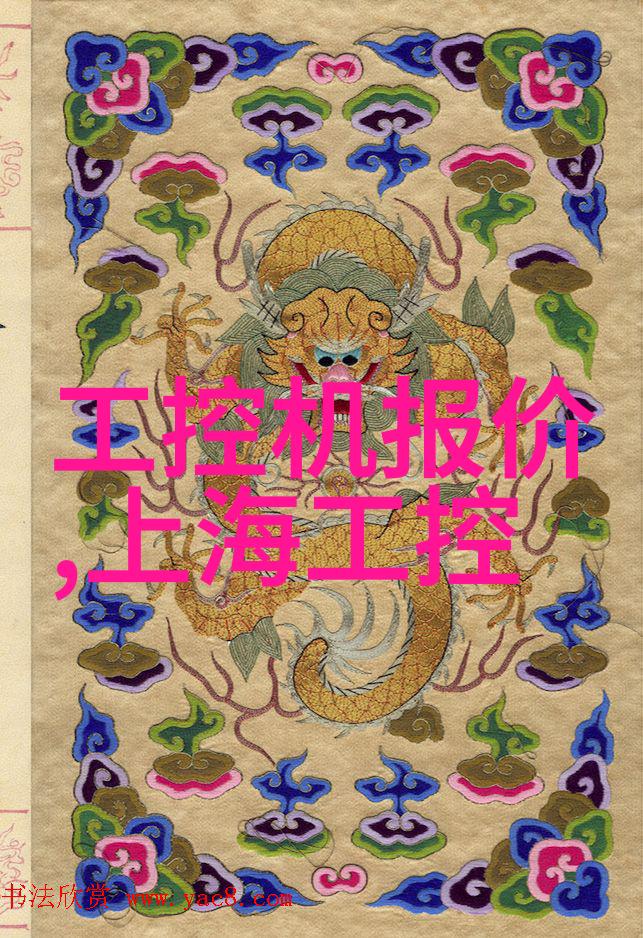 工控机报价
,上海工控
书法欣赏 www.yac8.com